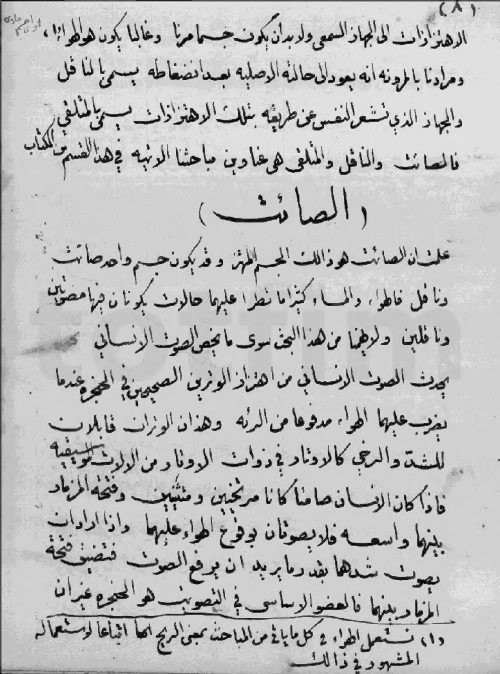 (٨)
الاهتزازات الى الجهاز السمعي ولا بد ان يكون جسما مرنا وغالبا يكون هو الهواء (١)
ومرادنا بالمرونه انه يعود الى حالته الاصليه بعد انضغاطه يسمى بالناقل
والجهاز الذي تشعر النفس عن طريقه بتلك الاهتزازات يسمى بالمتلقي
فالصائت والناقل والمتلقي هي عناوين مباحثنا الاتيه في هذا القسم من الكتاب
(الصائت)
علمت ان الصائت هو ذالك الجسم المهتز وقد يكون جسم واحد صائت
وناقل فالهواء والماء كثيرا ما تطرا عليهما حالات يكونان فيها مصوتين
وناقلين ولا يهمنا من هذا البحث سوى ما يخص الصوت الانساني
يحدث الصوت الانساني من اهتزاز الوترين الصوتيين في الحنجره عندما
يضرب عليهما الهواء مدفوعا من الرئه وهذان الوتران قابلان
للشد والرخي كالاوتار في ذوات الاوتار من الالات الموسيقيه
فاذا كان الانسان صامتا كانا مرتخيين ومنثنيين وفتحة المزمار
بينهما واسعه فلا يصوتان بوقوع الهواء عليهما واذا اراد ان
يصوت شدهما بقدر ما يريد ان يرفع الصوت فتضيق فتحة
المزمار بينهما فالعضو الاساسي في التصويت هو الحنجره غير ان
(١) نستعمل الهواء في كل ما ياتي من المباحث بمعنى الريح اتباعا لاستعماله
المشهور في ذالك
tottim